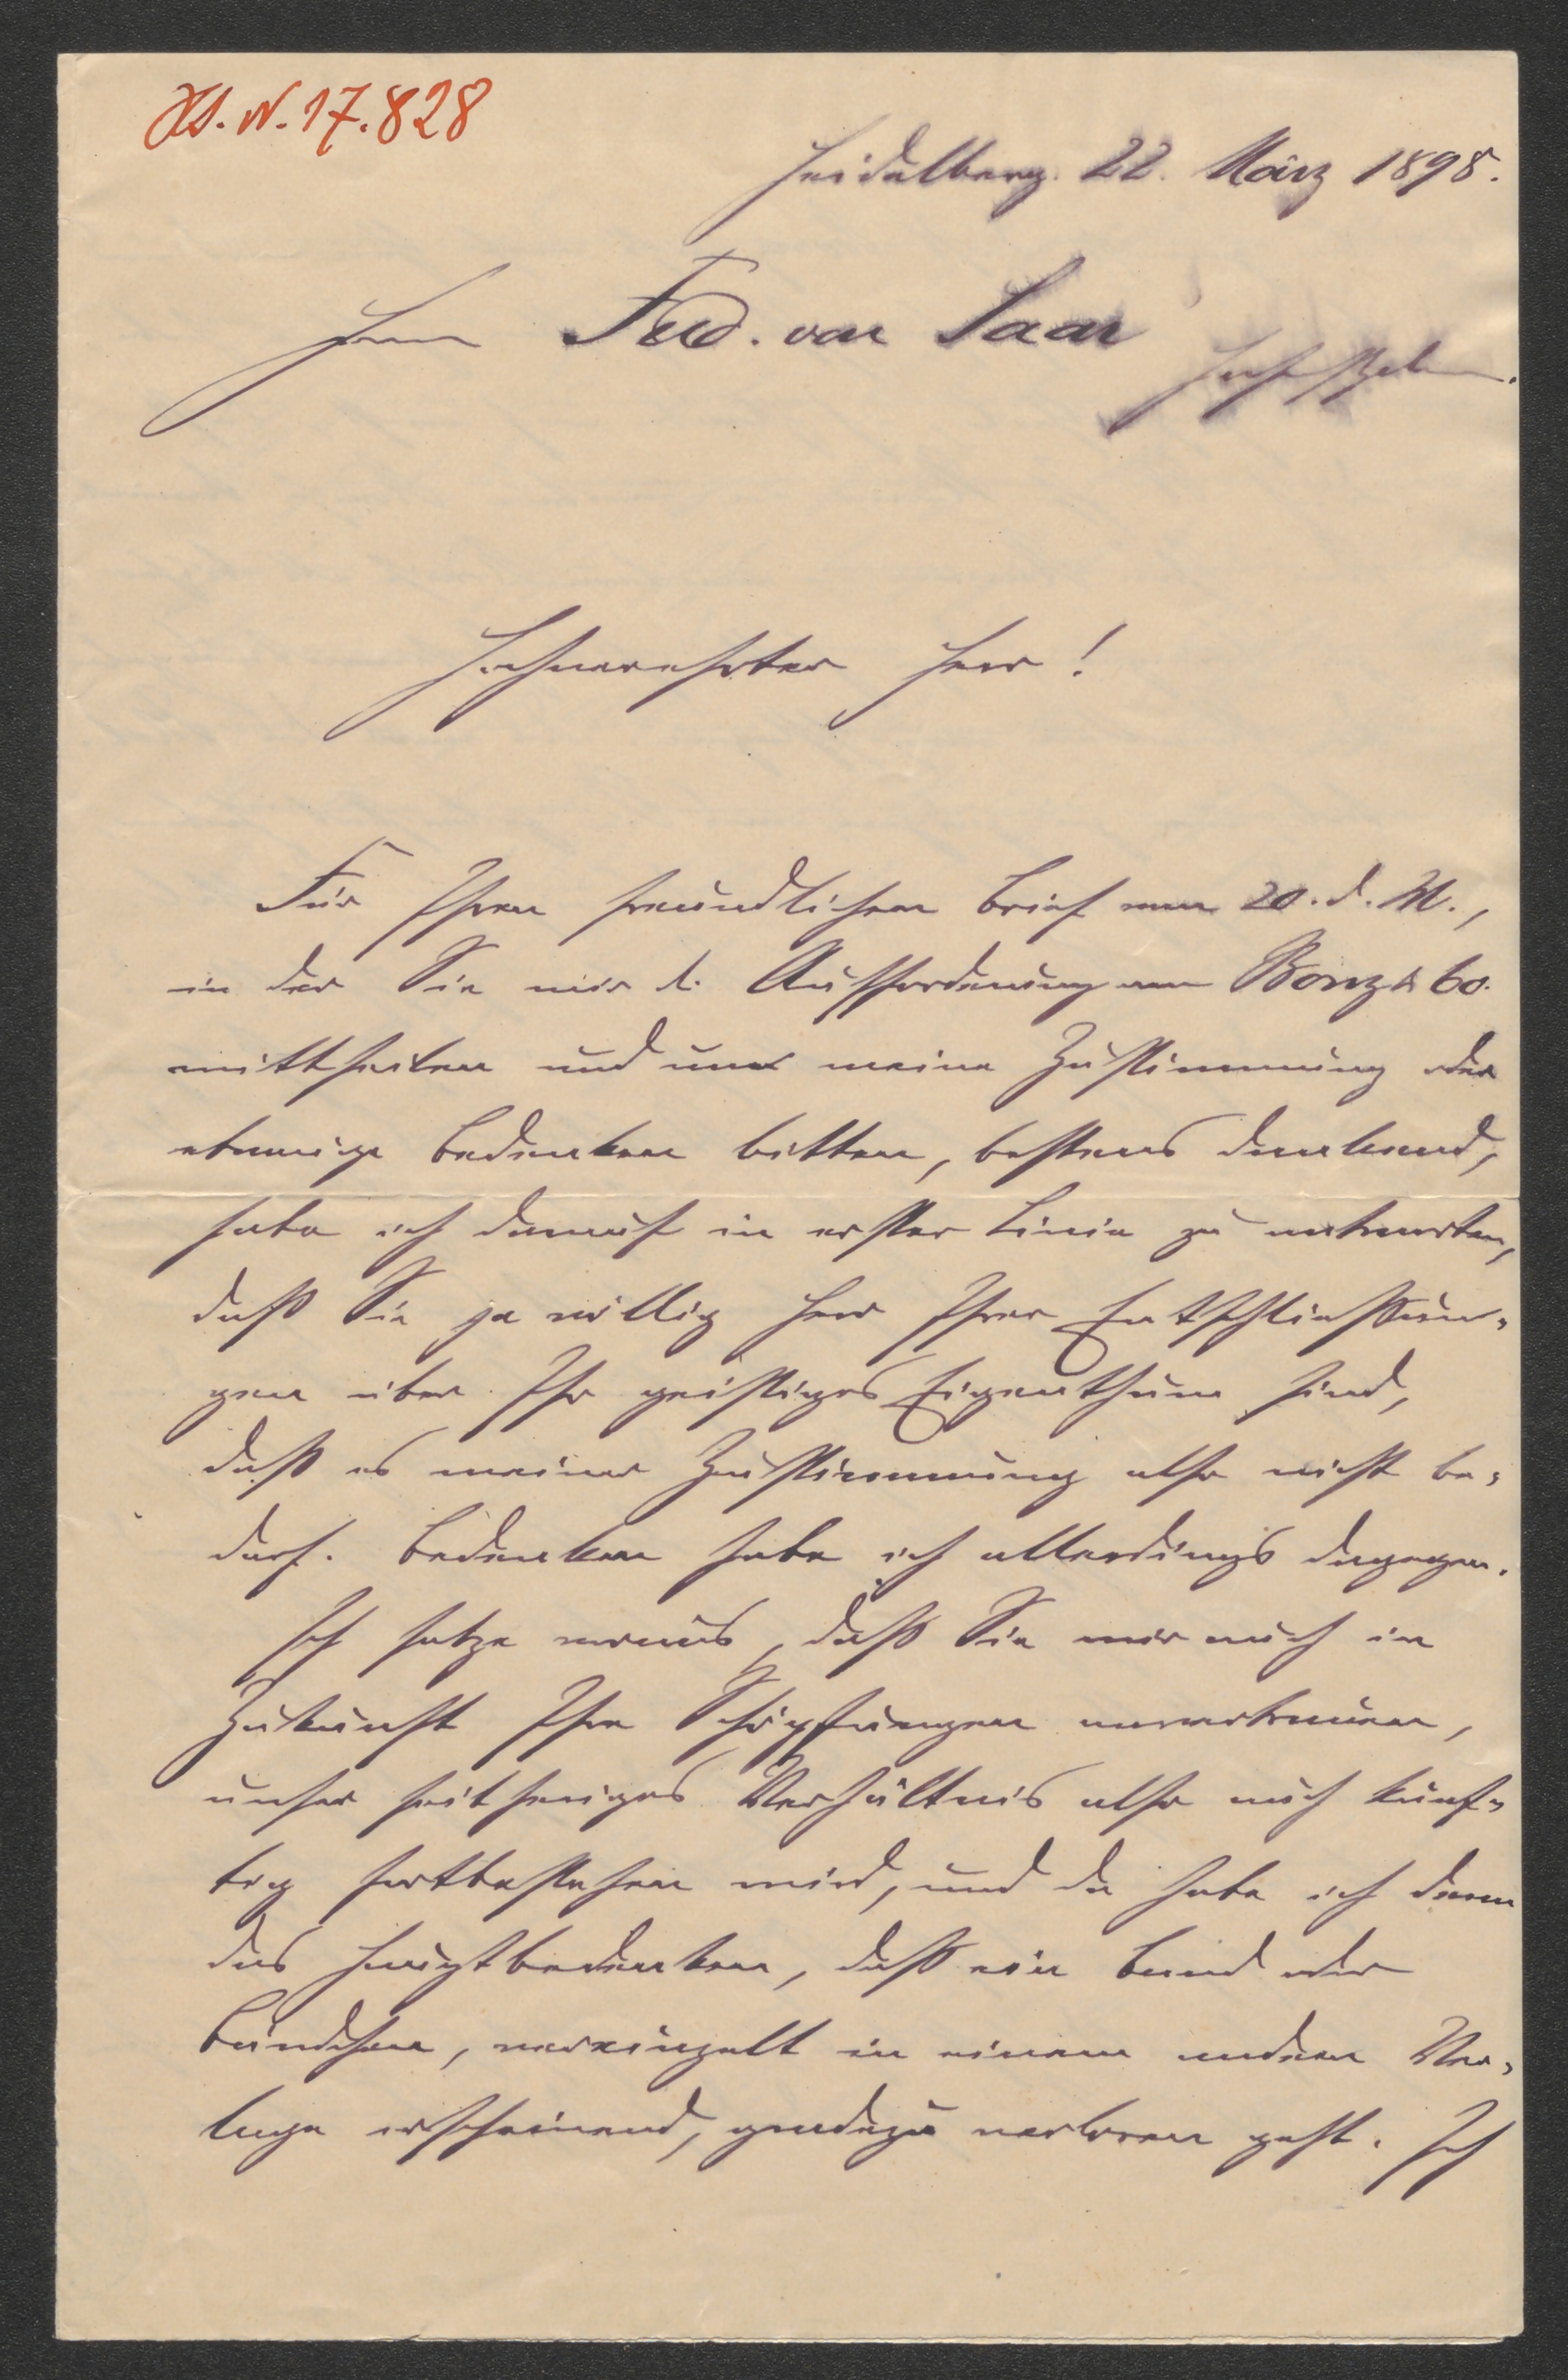 Hs. N. 17.828
Heidelberg. 22. März 1898.
Herrn Ferd. von Saar
Hochwohlgeb.
Hochverehrter Herr!
Für Ihren freundlichen Brief vom 20. d. M.,
in der Sie mir d. Aufforderung von Bonz & Co.
mittheilen und um meine Zustimmung oder
etwaige Bedenken bitten, bestens dankend,
habe ich darauf in erster Linie zu antworten,
daß Sie ja völlig Herr Ihrer Entschließun-
gen über Ihr geistiges Eigenthum sind,
daß es meiner Zustimmung also nicht be-
darf. Bedenken habe ich allerdings dagegen.
Ich setze voraus, daß Sie mir auch in
Zukunft Ihre Schöpfungen anvertrauen,
unser seitheriges Verhältnis also auch künf-
tig fortbestehen wird, und da habe ich denn
das Hauptbedenken, daß ein Band oder
Bändchen, vereinzelt in einem andern Ver-
lage erscheinend, geradezu verloren geht. Ich